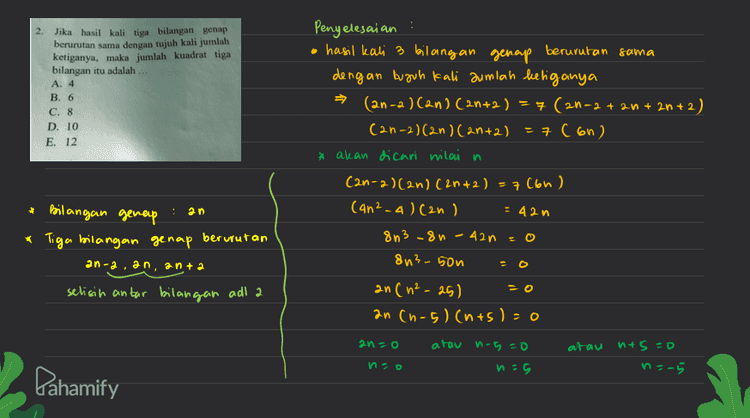 2. Jika hasil kali tiga bilangan genap
berurutan sama dengan tujuh kali jumlah
ketiganya, maka jumlah kuadrat tiga
bilangan itu adalah ...
A. 4
B. 6
C. 8
D. 10
E. 12
* Bilangan genap : 2n
* Tiga bilangan genap berurutan
2n-2, 2n, 2n+2
selisih antar bilangan adl 2
Penyelesaian :
• hasil kali 3 bilangan genap berurutan sama
dengan tujuh kali jumlah ketiganya
⇒ (2n-2)(2n)(2n+2) = 7(2n-2+2n+2n+2)
(2n-2)(2n)(2n+2) = 7(6n)
* akan dicari nilai n
(2n-2)(2n)(2n+2) = 7(6n)
(4n²-4)(2n) = 42n
8n³-8n-42n = 0
8n³-50n = 0
2n(n²-25) = 0
2n(n-5)(n+5) = 0
2n=0 atau n-5=0 atau n+5=0
n=0 n=5 n=-5
Pahamify